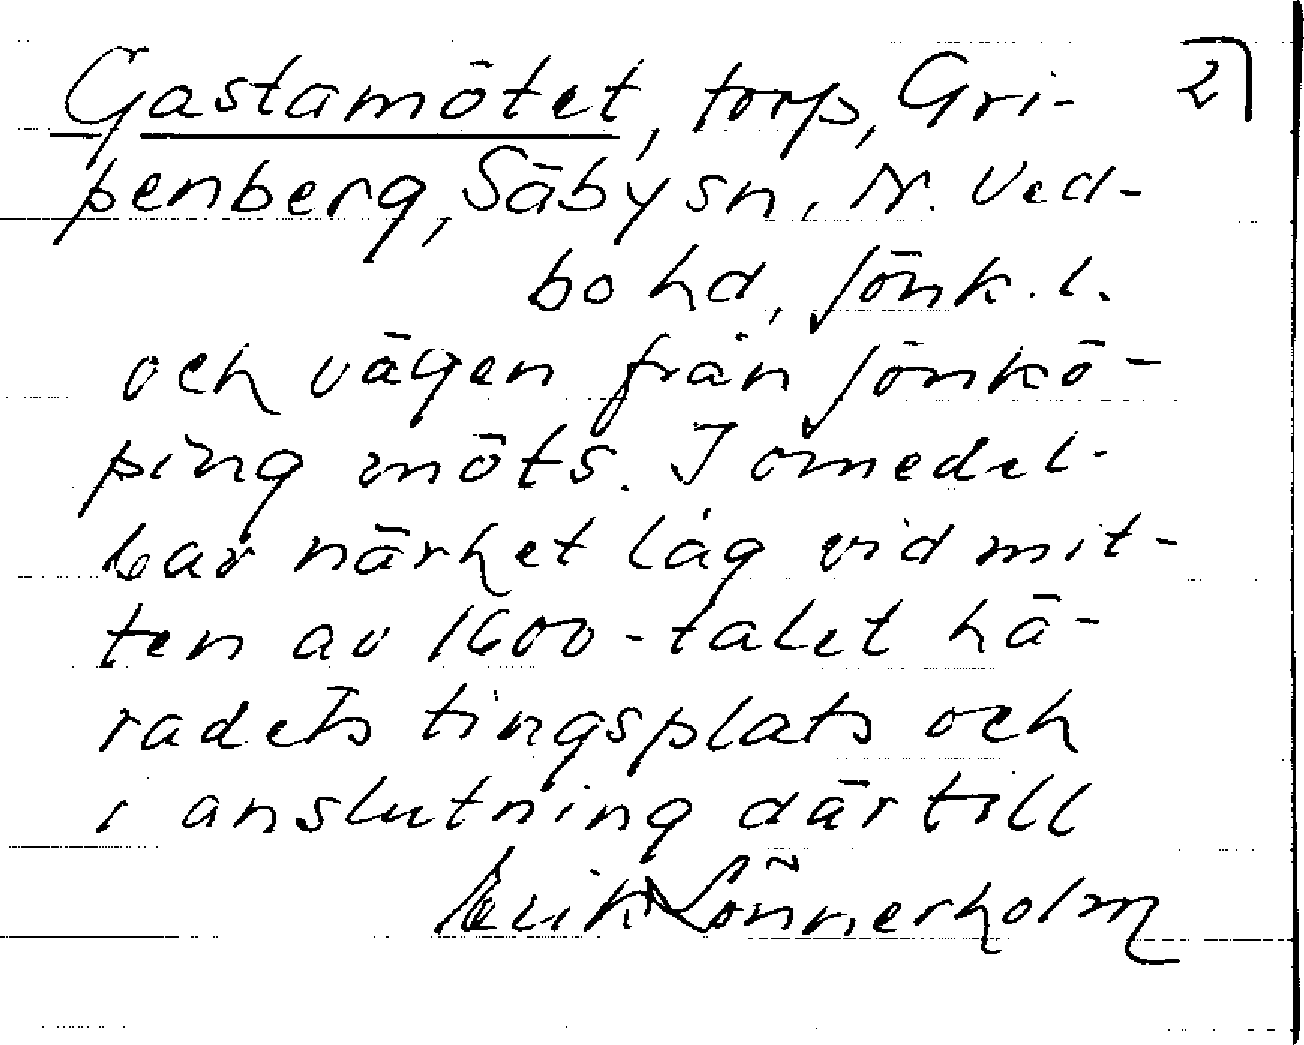 Gastamötet, torp, Gri- 2
penberg, Säby sn, N. Ved-
bo hd, Jönk. l.
och vägen från Jönkö-
ping möts. I omedel-
bar närhet låg vid mit-
ten av 1600-talet hä-
radets tingsplats och
i anslutning därtill
Erik Lönnerholm